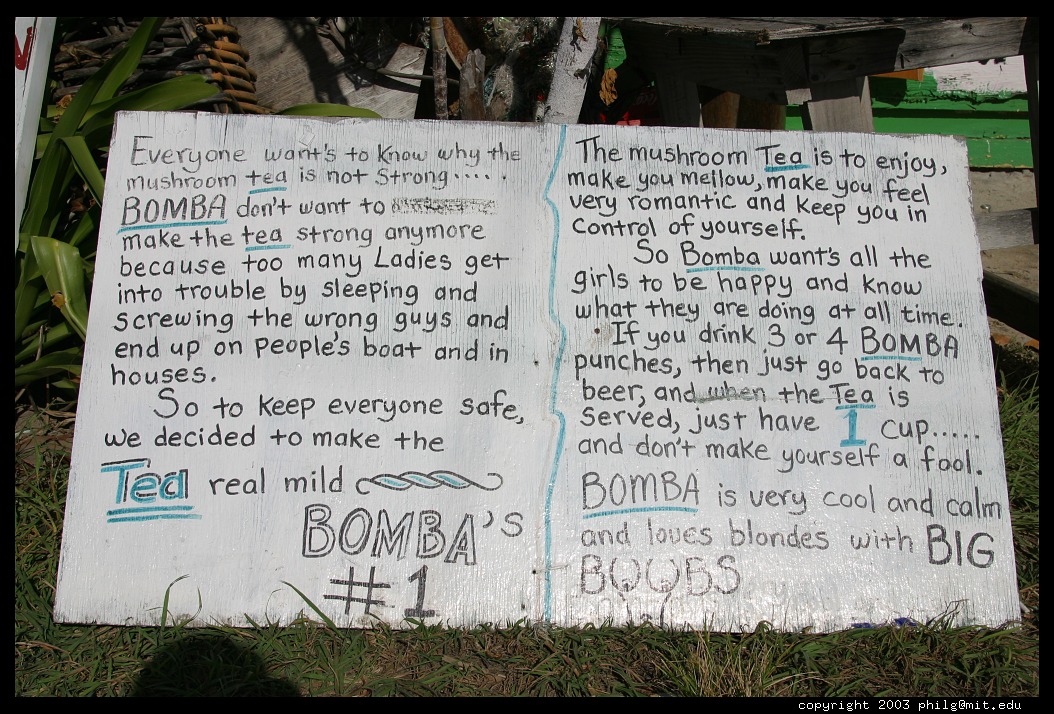 Everyone want's to Know why the
mushroom tea is not Strong....
BOMBA don't want to
make the tea strong anymore
because too many Ladies get
into trouble by sleeping and
screwing the wrong guys and
end up on people's boat and in
houses.
So to keep everyone safe,
we decided to make the
Tea real mild
BOMBA's
#1
The mushroom Tea is to enjoy,
make you mellow, make you feel
very romantic and keep you in
Control of yourself.
So Bomba want's all the
girls to be happy and know
what they are doing at all time.
If you drink 3 or 4 BOMBA
punches, then just go back to
beer, and when the Tea is
served, just have 1 cup.....
and don't make yourself a fool.
BOMBA is very cool and calm
and loves blondes with BIG
BOOBS
copyright 2003 philg@mit.edu